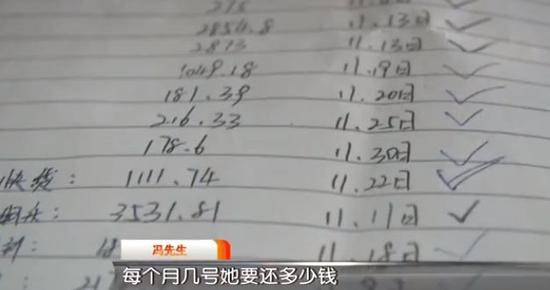 2854.8 11.13日
2873 11.13日
1049.18 11.19日
181.39 11.20日
216.33 11.25日
178.6 11.30日
快贷: 1111.74 11.22日
3531.81 11.11日
11.18日
冯先生
每个月几号她要还多少钱